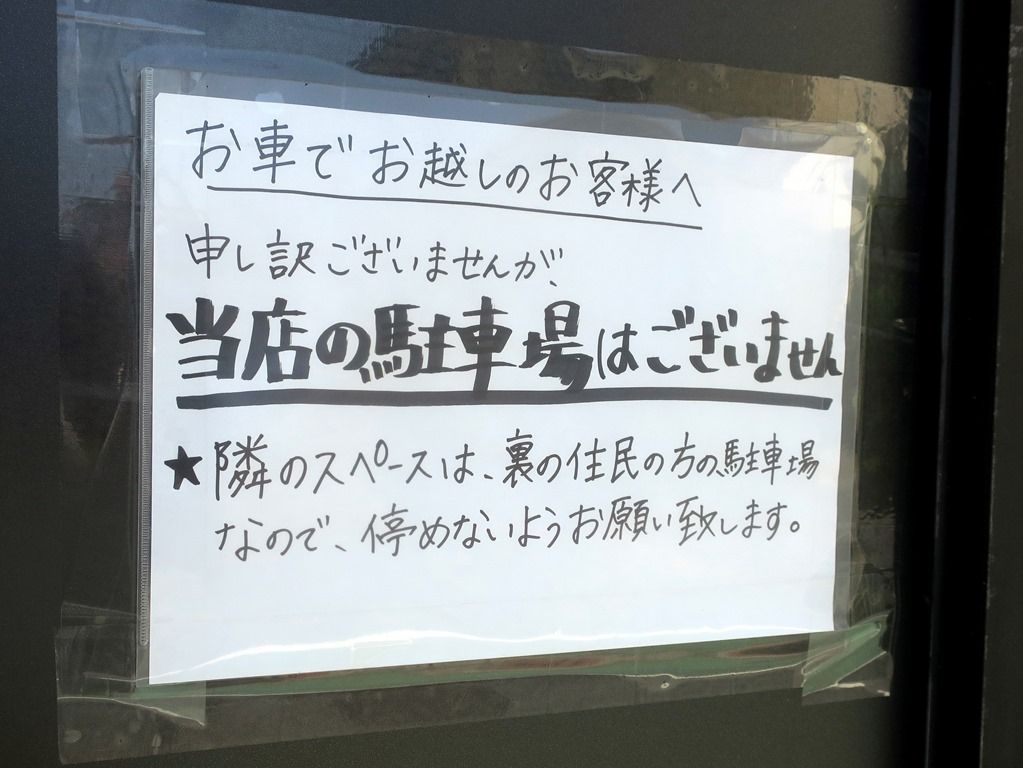 お車でお越しのお客様へ
申し訳ございませんが、
当店の駐車場はございません
★隣のスペースは、裏の住民の方の駐車場
なので、停めないようお願い致します。